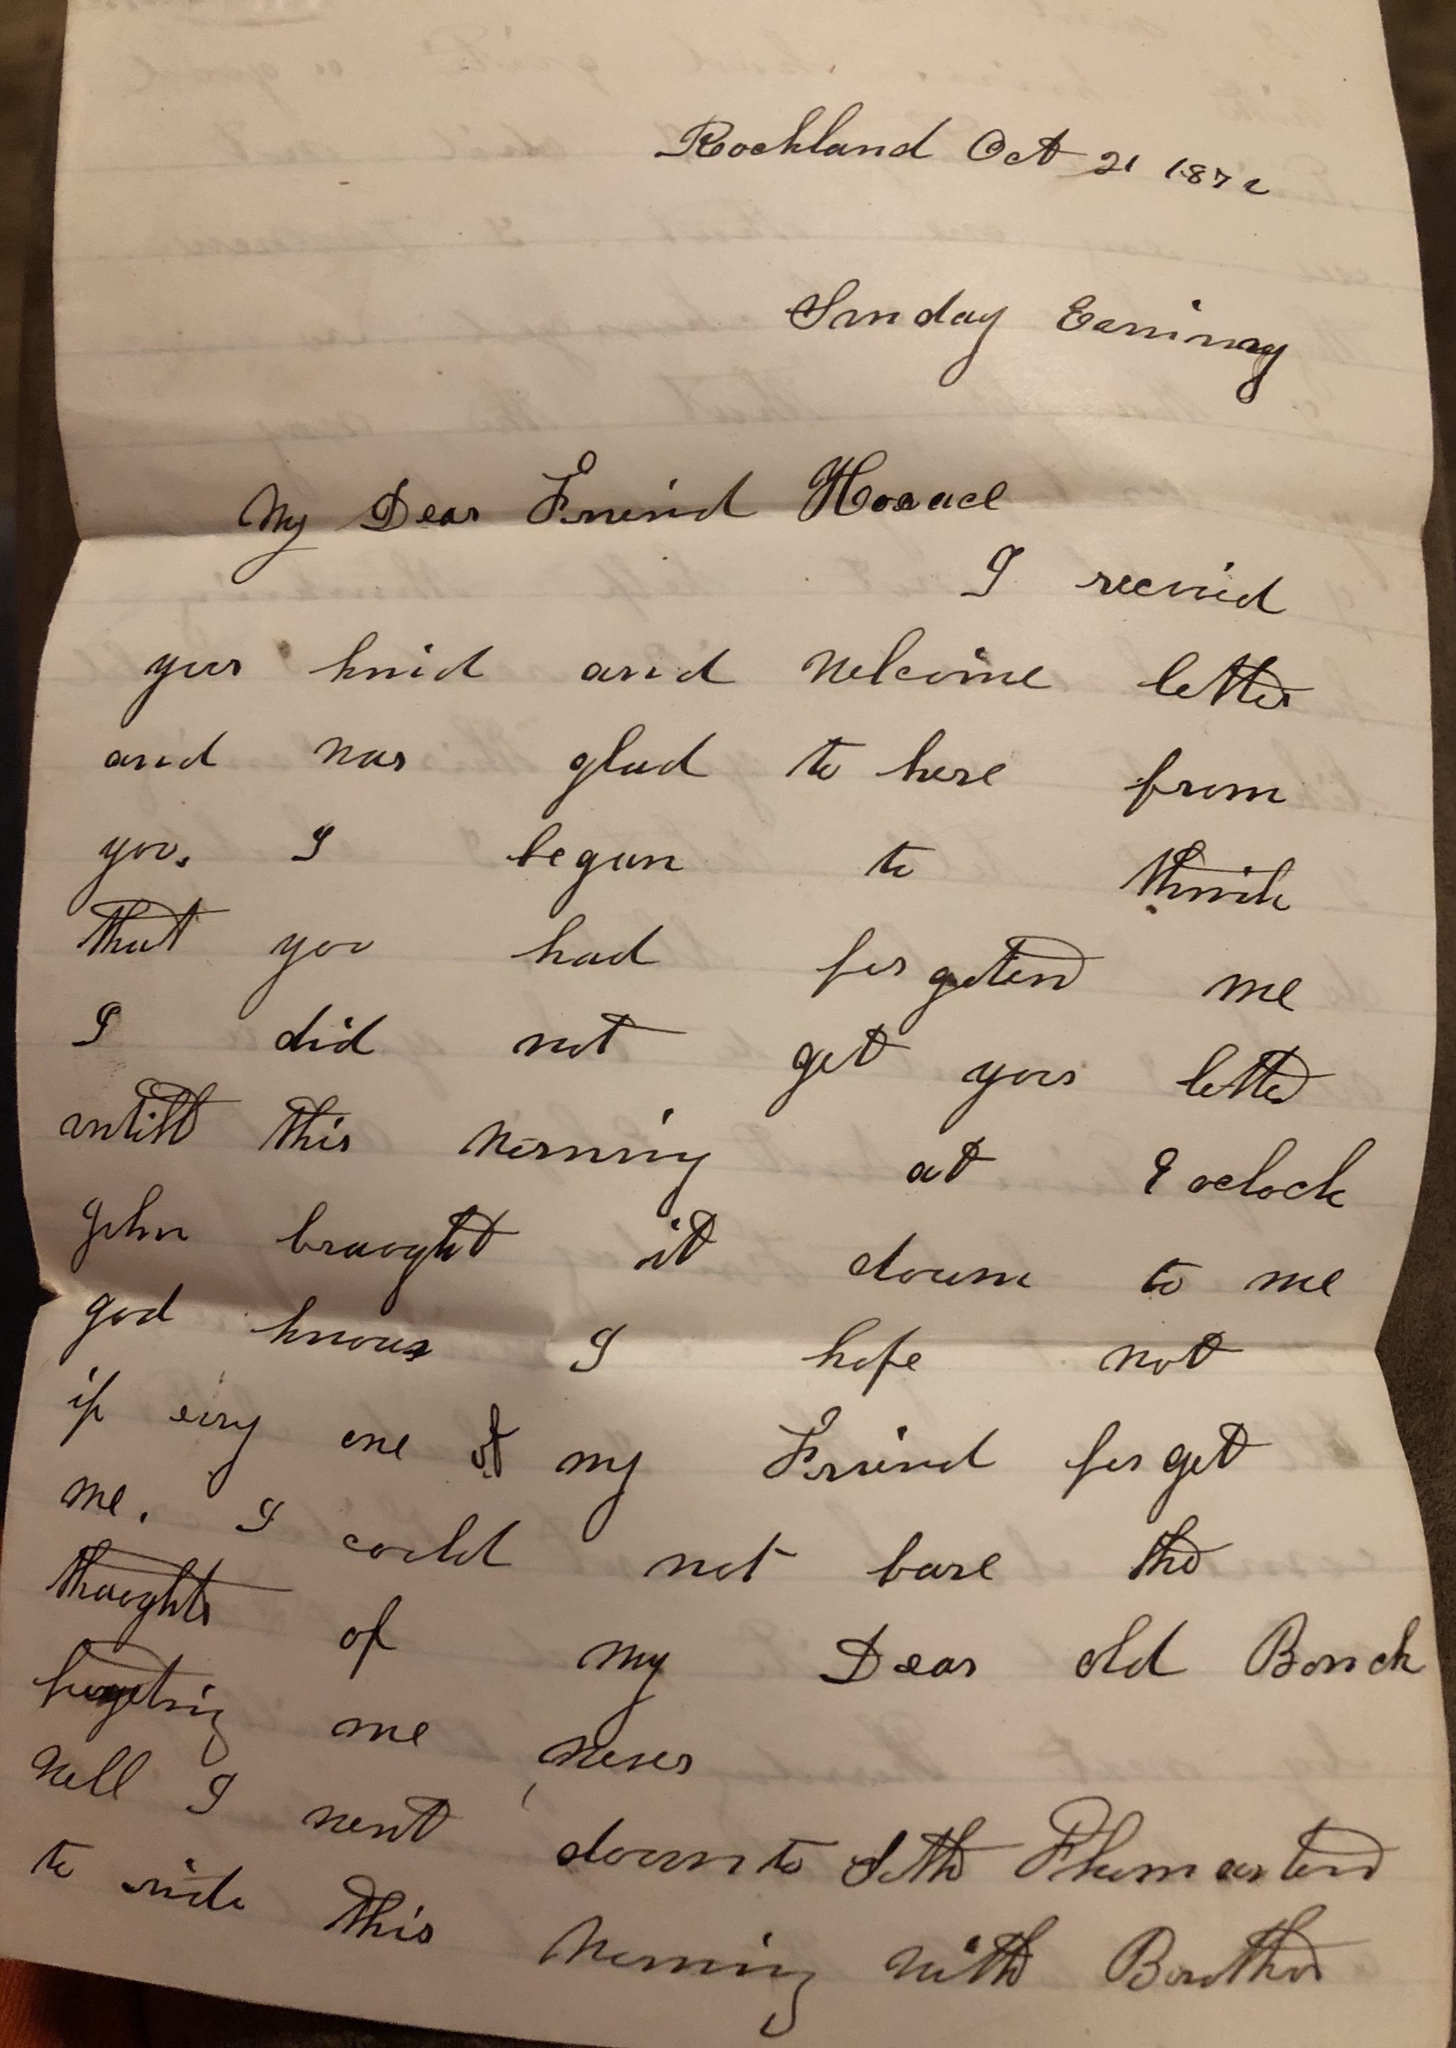 Rockland Oct 21 1872
Sunday Eavning
My Dear Friend Horace
I recevid
your kind and welcome letter
and was glad to here from
you. I begun to think
that you had forgoten me
I did not get your letter
untill this morning at 9 oclock
John brought it down to me
god knows I hope not
if evry one of my Friend forget
me. I could not bare the
thoughts of my Dear old Bonck
forgeting me never
Well I went down to
to ride this morning with Brother